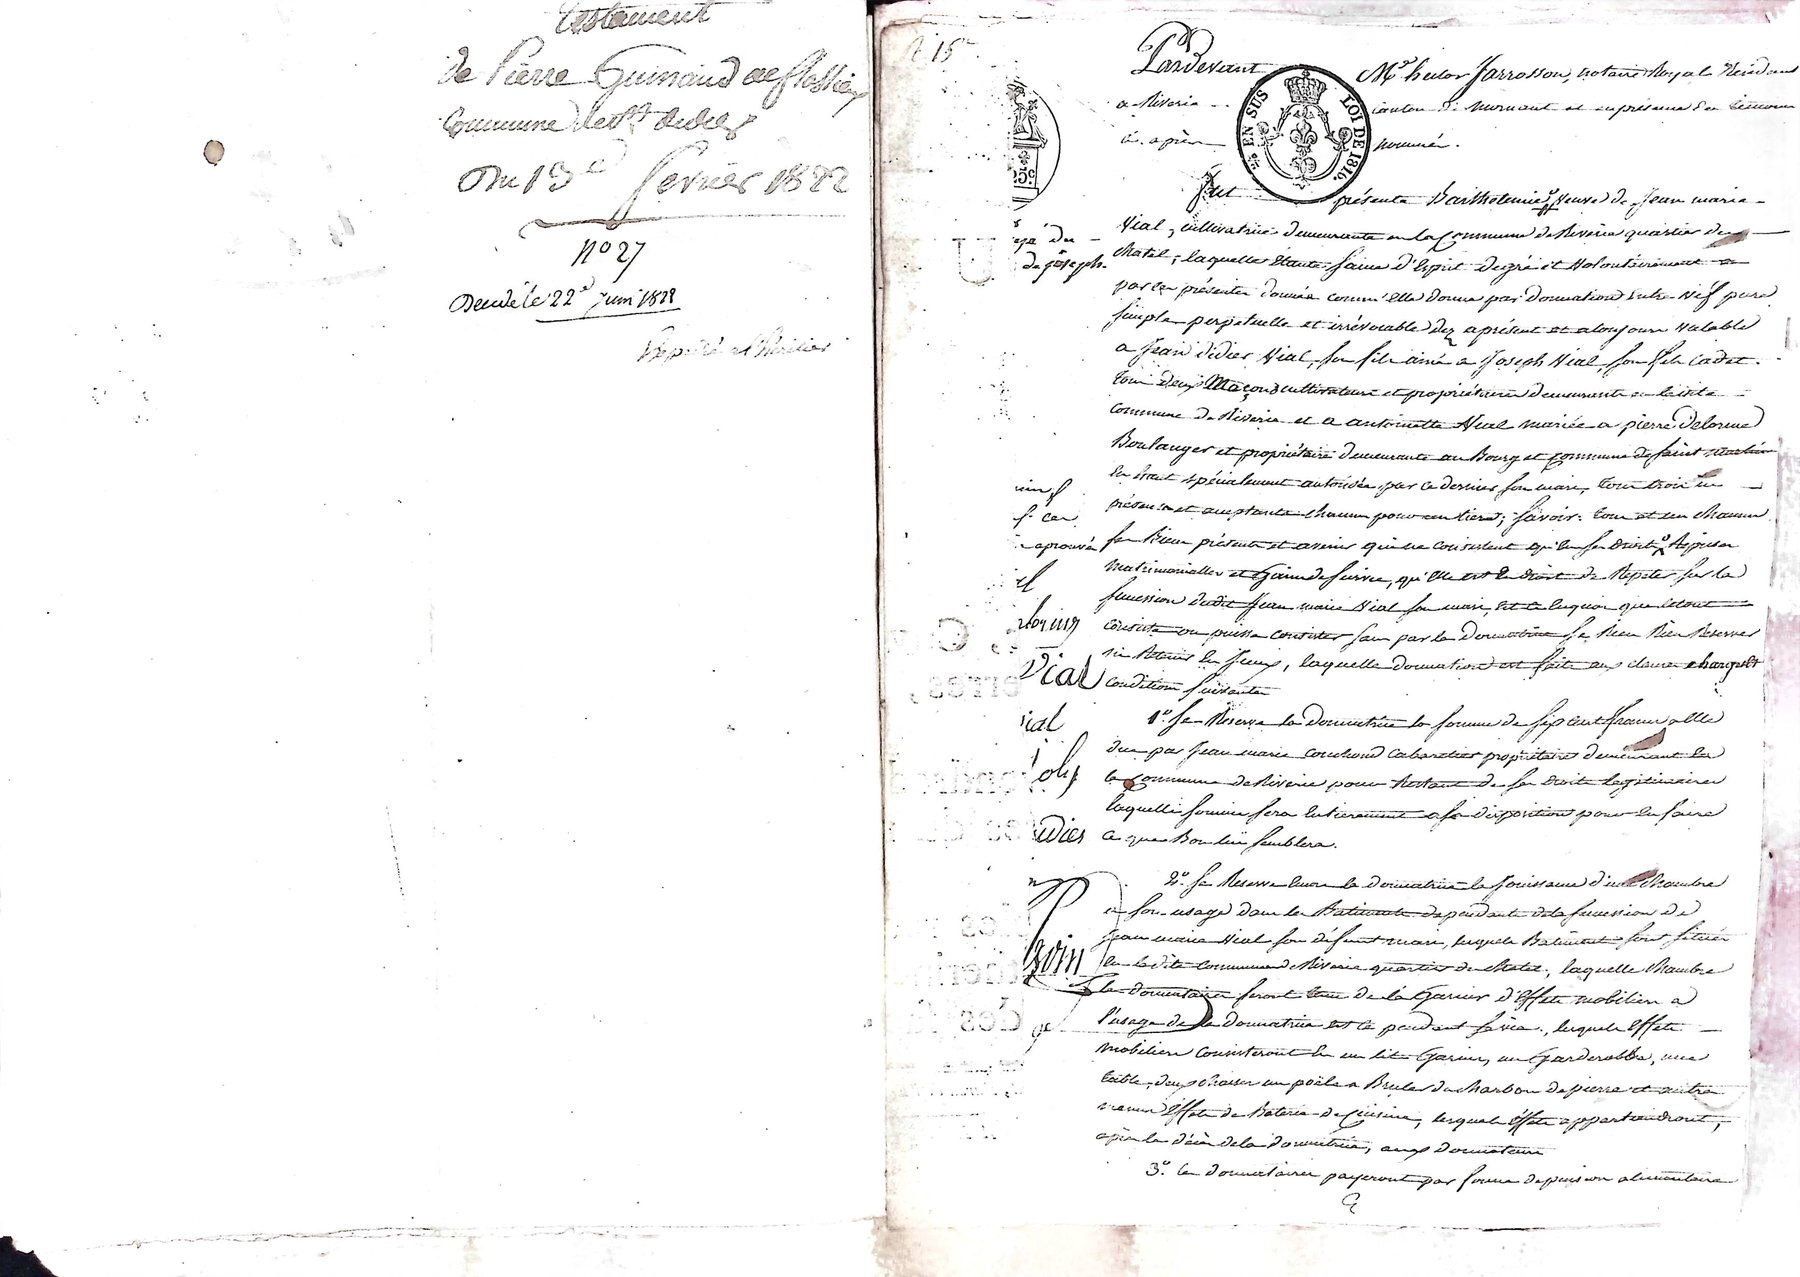 Testament
de Pierre Guinand de flossieux
Commune de st didier
Du 13e fevrier 1822
No 27
Decédé le 22e juin 1822
N 15
Pardevant Me hector Jarrosson, notaire Royal Résidant
a Riverie canton de mornant et en présence des témoins
ci après nommés.
EN SUS LOI DE 1816.
5c
Fut présente Barthélemie veuve de Jean marie
Vial, cultivatrice demeurante en la Commune de Riverie quartier du
Chatel, laquelle étante saine d'Esprit de gré et volontairement a
par ces présentes donnée comm'elle donne par donnation entre vifs pure
simple perpetuelle et irrévocable dez a présent et a toujours valable
a Jean didier Vial, son fils ainé a Joseph Vial, son fils cadet.
tous deux Maçons cultivateurs et propriétaires demeurants en la dite
commune de Riverie et a antoinette Vial mariée a pierre delorme
Boulanger et propriétaire demeurante au Bourg et commune de saint martin
en haut spécialement autorisée par ce dernier son mari, tous trois ici
présents et acceptants chacun pour un tiers; savoir: tous et un chacun
ses Biens présents et avenir qui ne consistent qu'en ses droits Reprises
matrimonialles et Gains de survie, qu'elle est en droit de Repeter sur la
succession dudit Jean marie Vial son mari, et en quoi que le tout
consiste ou puisse consister sans par la donnatrice se Rien Rien Reserver
ni Retenir en jceux, laquelle donnation est faite aux clauses charges et
conditions suivantes
1o. Se Réserve la donnatrice la somme de sept cent francs a elle
due par Jean marie Couchoud Cabaretier propriétaire demeurant en
la commune de Riverie pour Restant de ses droits légitimaires
laquelle somme sera entierement a sa disposition pour en faire
ce que Bon lui semblera.
2o. Se Reserve encore la donnatrice la Jouissance d'une chambre
a son usage dans les Batiments dependants de la succession de
Jean marie Vial son défunt mari, lesquels Batiments sont situés
en la dite commune de Riverie quartier du chatel, laquelle chambre
les donnataires seront tenus de la Garnir d'effets mobiliers a
l'usage de la donnatrice et ce pendant sa vie, lesquels effets
mobiliers consisteront en un lit Garni, un Garderobbe, une
table, deux chaises un poële a Bruler du charbon de pierre et autres
menus Effets de Baterie de Cuisine, lesquels effets appartiendront,
après le décès de la donnatrice, aux donnataires
3o. les donnataires payeront par forme de pension alimentaire
du
de joseph
ces
aprouvé
Vial